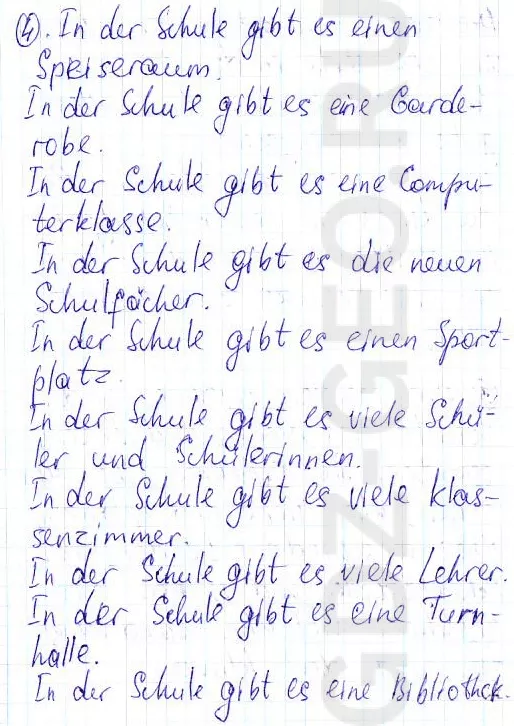 ④. In der Schule gibt es einen
Speiseraum.
In der Schule gibt es eine Garde-
robe.
In der Schule gibt es eine Compu-
terklasse.
In der Schule gibt es die neuen
Schulfächer.
In der Schule gibt es einen Sport-
platz.
In der Schule gibt es viele Schü-
ler und Schülerinnen.
In der Schule gibt es viele Klas-
senzimmer.
In der Schule gibt es viele Lehrer.
In der Schule gibt es eine Turn-
halle.
In der Schule gibt es eine Bibliothek.
GDZ-GEO.RU